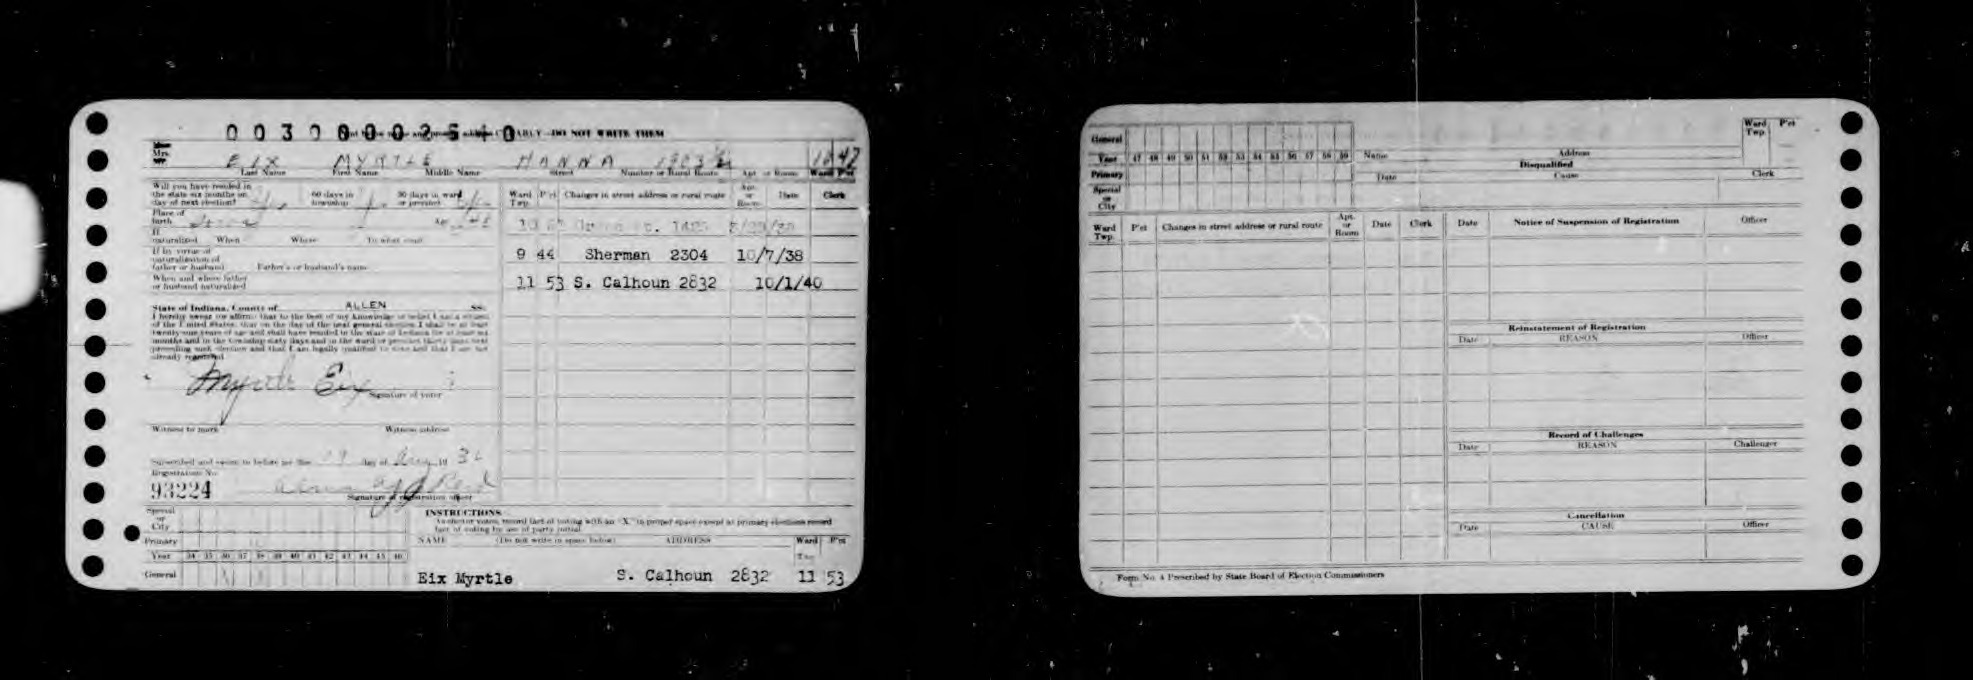 00300002540
DO NOT WRITE THEM
Mrs.
EIX MYRTLE HANNA 1903 1/2 10 47
Last Name First Name Middle Name Street Number or Rural Route Apt. or Room Ward P'ct
Will you have resided in
the state six months on
day of next election?
60 days in
township
30 days in ward
or precinct
Ward
Twp.
P'ct
Changes in street address or rural route
Apt.
or
Room
Date
Clerk
Place of
birth
If
naturalized When Where To what court
9 44 Sherman 2304 10/7/38
If by virtue of
naturalization of
father or husband Father's or husband's name
When and where father
or husband naturalized
11 53 S. Calhoun 2832 10/1/40
State of Indiana, County of ALLEN ss.
I hereby swear (or affirm) that to the best of my knowledge or belief I am a citizen
of the United States, that on the day of the next general election I shall be at least
twenty-one years of age and shall have resided in the state of Indiana for at least six
months and in the township sixty days and in the ward or precinct thirty days next
preceding such election and that I am legally qualified to vote and that I am not
already registered
Myrtle Eix
Signature of voter
Witness to mark Witness address
Subscribed and sworn to before me this day of 19 36
Registration No.
93224
Signature of registration officer
Special
or
City
Primary
Year 34 35 36 37 38 39 40 41 42 43 44 45 46
General
INSTRUCTIONS
As elector votes, record fact of voting with an "X" in proper space except at primary elections record
fact of voting by use of party initial.
NAME (Do not write in space below) ADDRESS Ward P'ct
Twp.
Eix Myrtle S. Calhoun 2832 11 53
General
Year 47 48 49 50 51 52 53 54 55 56 57 58 59
Primary
Special
or
City
Name Address
Disqualified
Date Cause Clerk
Ward
Twp.
P'ct
Ward
Twp.
P'ct
Changes in street address or rural route
Apt.
or
Room
Date
Clerk
Date Notice of Suspension of Registration Officer
Reinstatement of Registration
Date REASON Officer
Record of Challenges
Date REASON Challenger
Cancellation
Date CAUSE Officer
Form No. 4 Prescribed by State Board of Election Commissioners